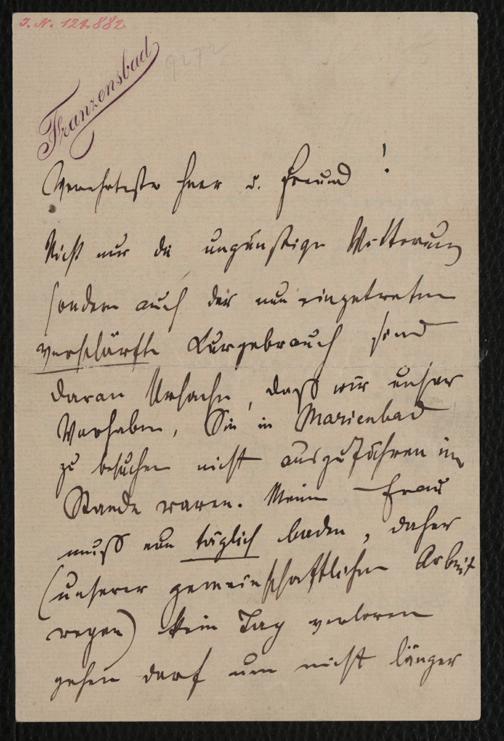 J. N. 122.882
Franzensbad
9272
Verehrtester Herr u. Freund!
Nicht nur die ungünstige Witterung
sondern auch der nun eingetretene
verschärfte Curgebrauch sind
daran Ursache, daß wir unser
Vorhaben, Sie in Marienbad
zu besuchen nicht auszuführen im
Stande waren. Meine Frau
muß nun täglich baden, daher
(unserer gemeinschaftlichen Arbeit
wegen) kein Tag verloren
gehen darf um nicht länger